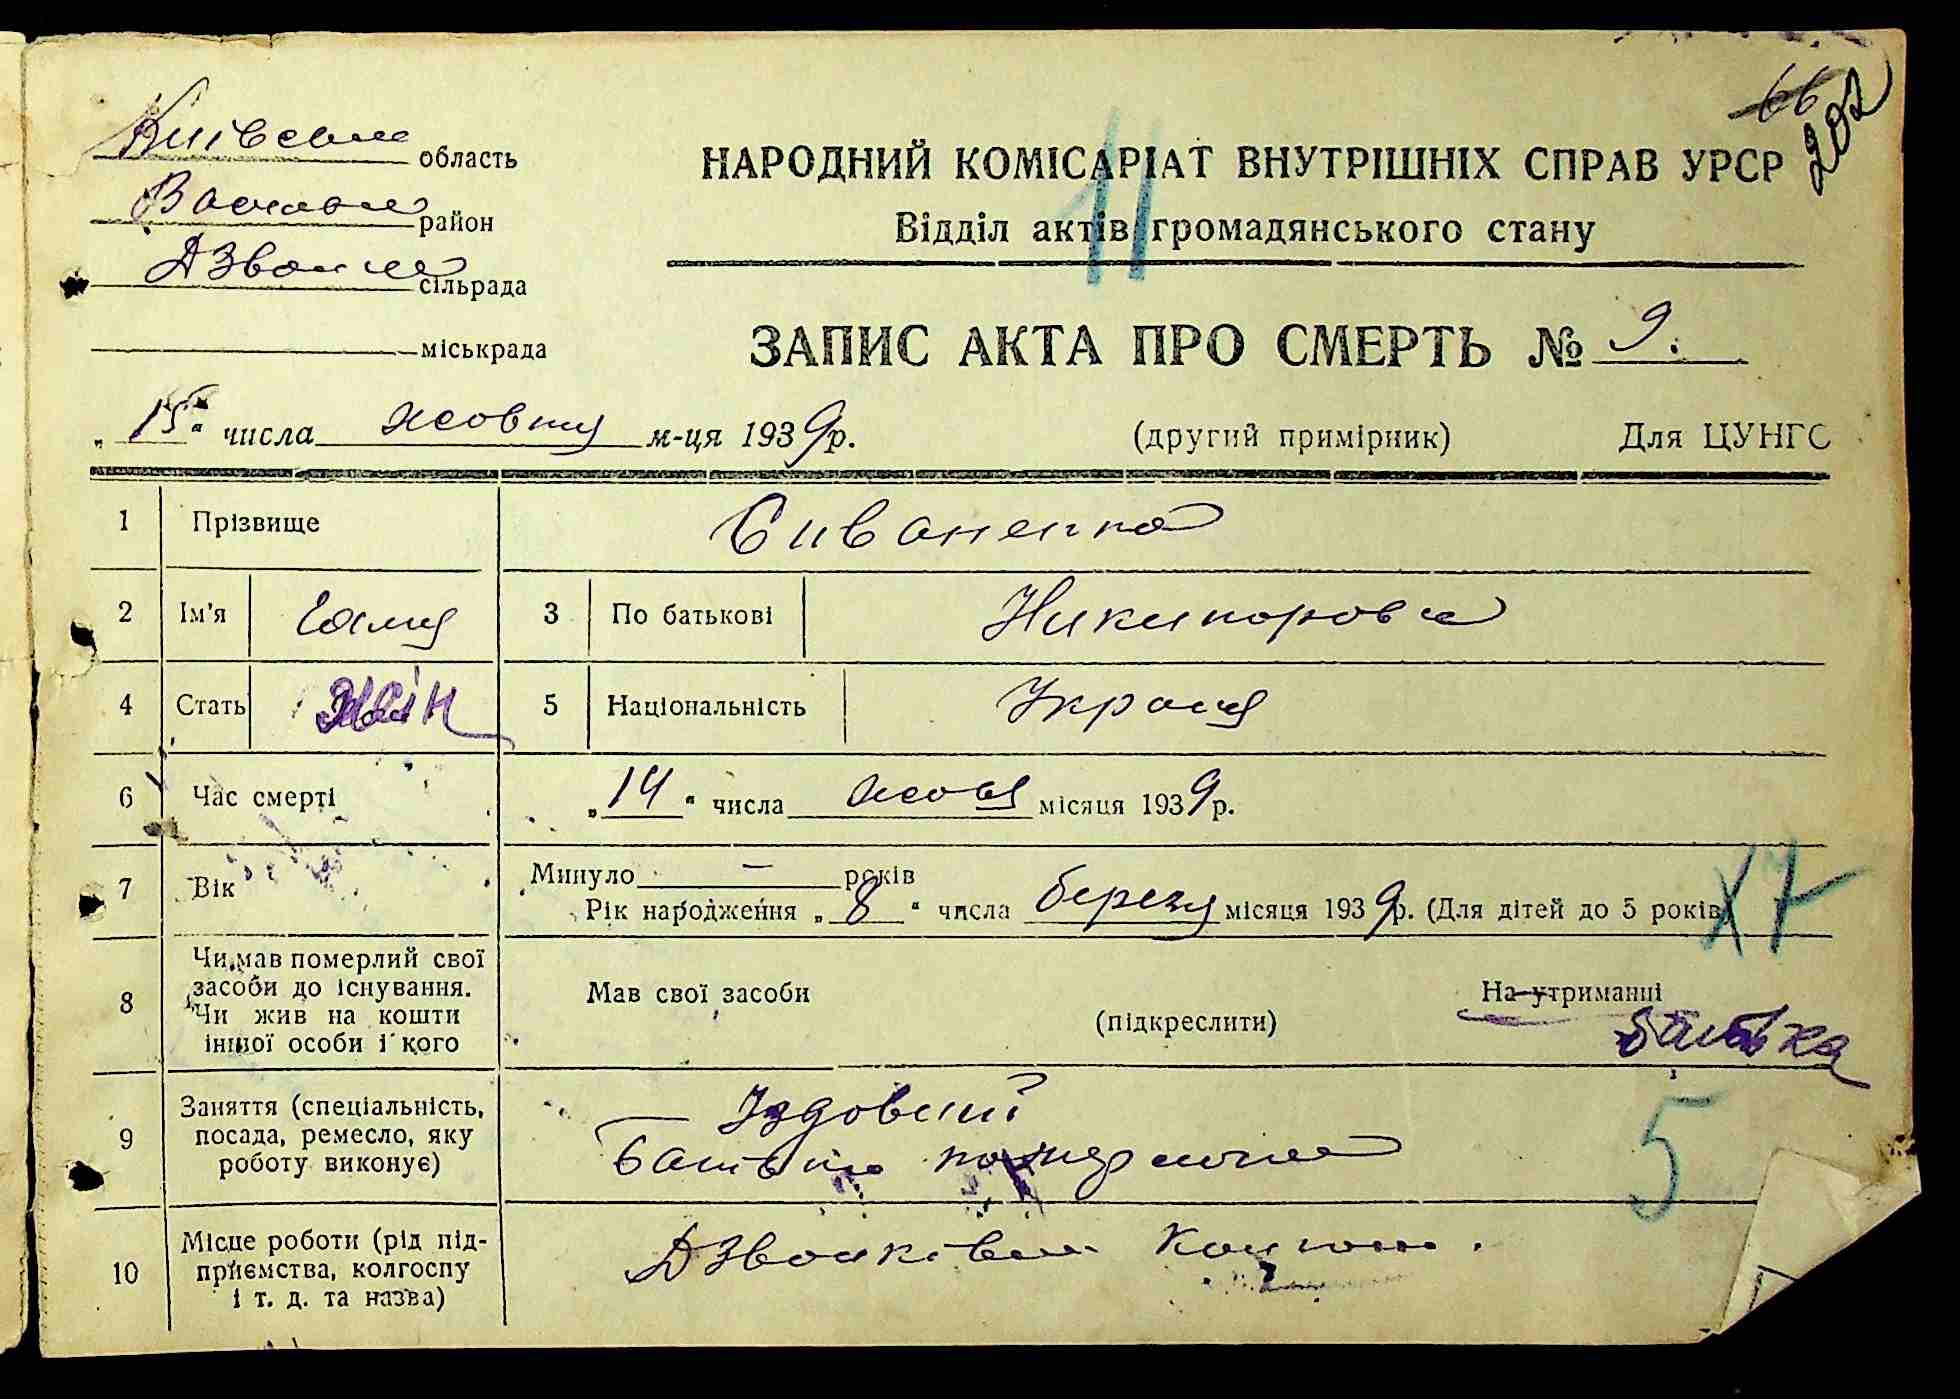 66
202
Київська область
НАРОДНИЙ КОМІСАРІАТ ВНУТРІШНІХ СПРАВ УРСР
район
Відділ актів громадянського стану
11
сільрада
міськрада
ЗАПИС АКТА ПРО СМЕРТЬ № 9.
„15“ числа жовтня м-ця 1939р.
(другий примірник) Для ЦУНГО
1 Прізвище Сиваненко
2 Ім'я Галя 3 По батькові Никипорова
4 Стать Жін 5 Національність Україн
6 Час смерті „14“ числа жовтня місяця 1939р.
7 Вік Минуло — років
Рік народження „8“ числа березня місяця 1939р. (Для дітей до 5 років)
8 Чи мав померлий свої засоби до існування. Чи жив на кошти іншої особи і кого
Мав свої засоби (підкреслити) На утриманні
батька
9 Заняття (спеціальність, посада, ремесло, яку роботу виконує)
Їздовий
5
10 Місце роботи (рід підприємства, колгоспу і т. д. та назва)